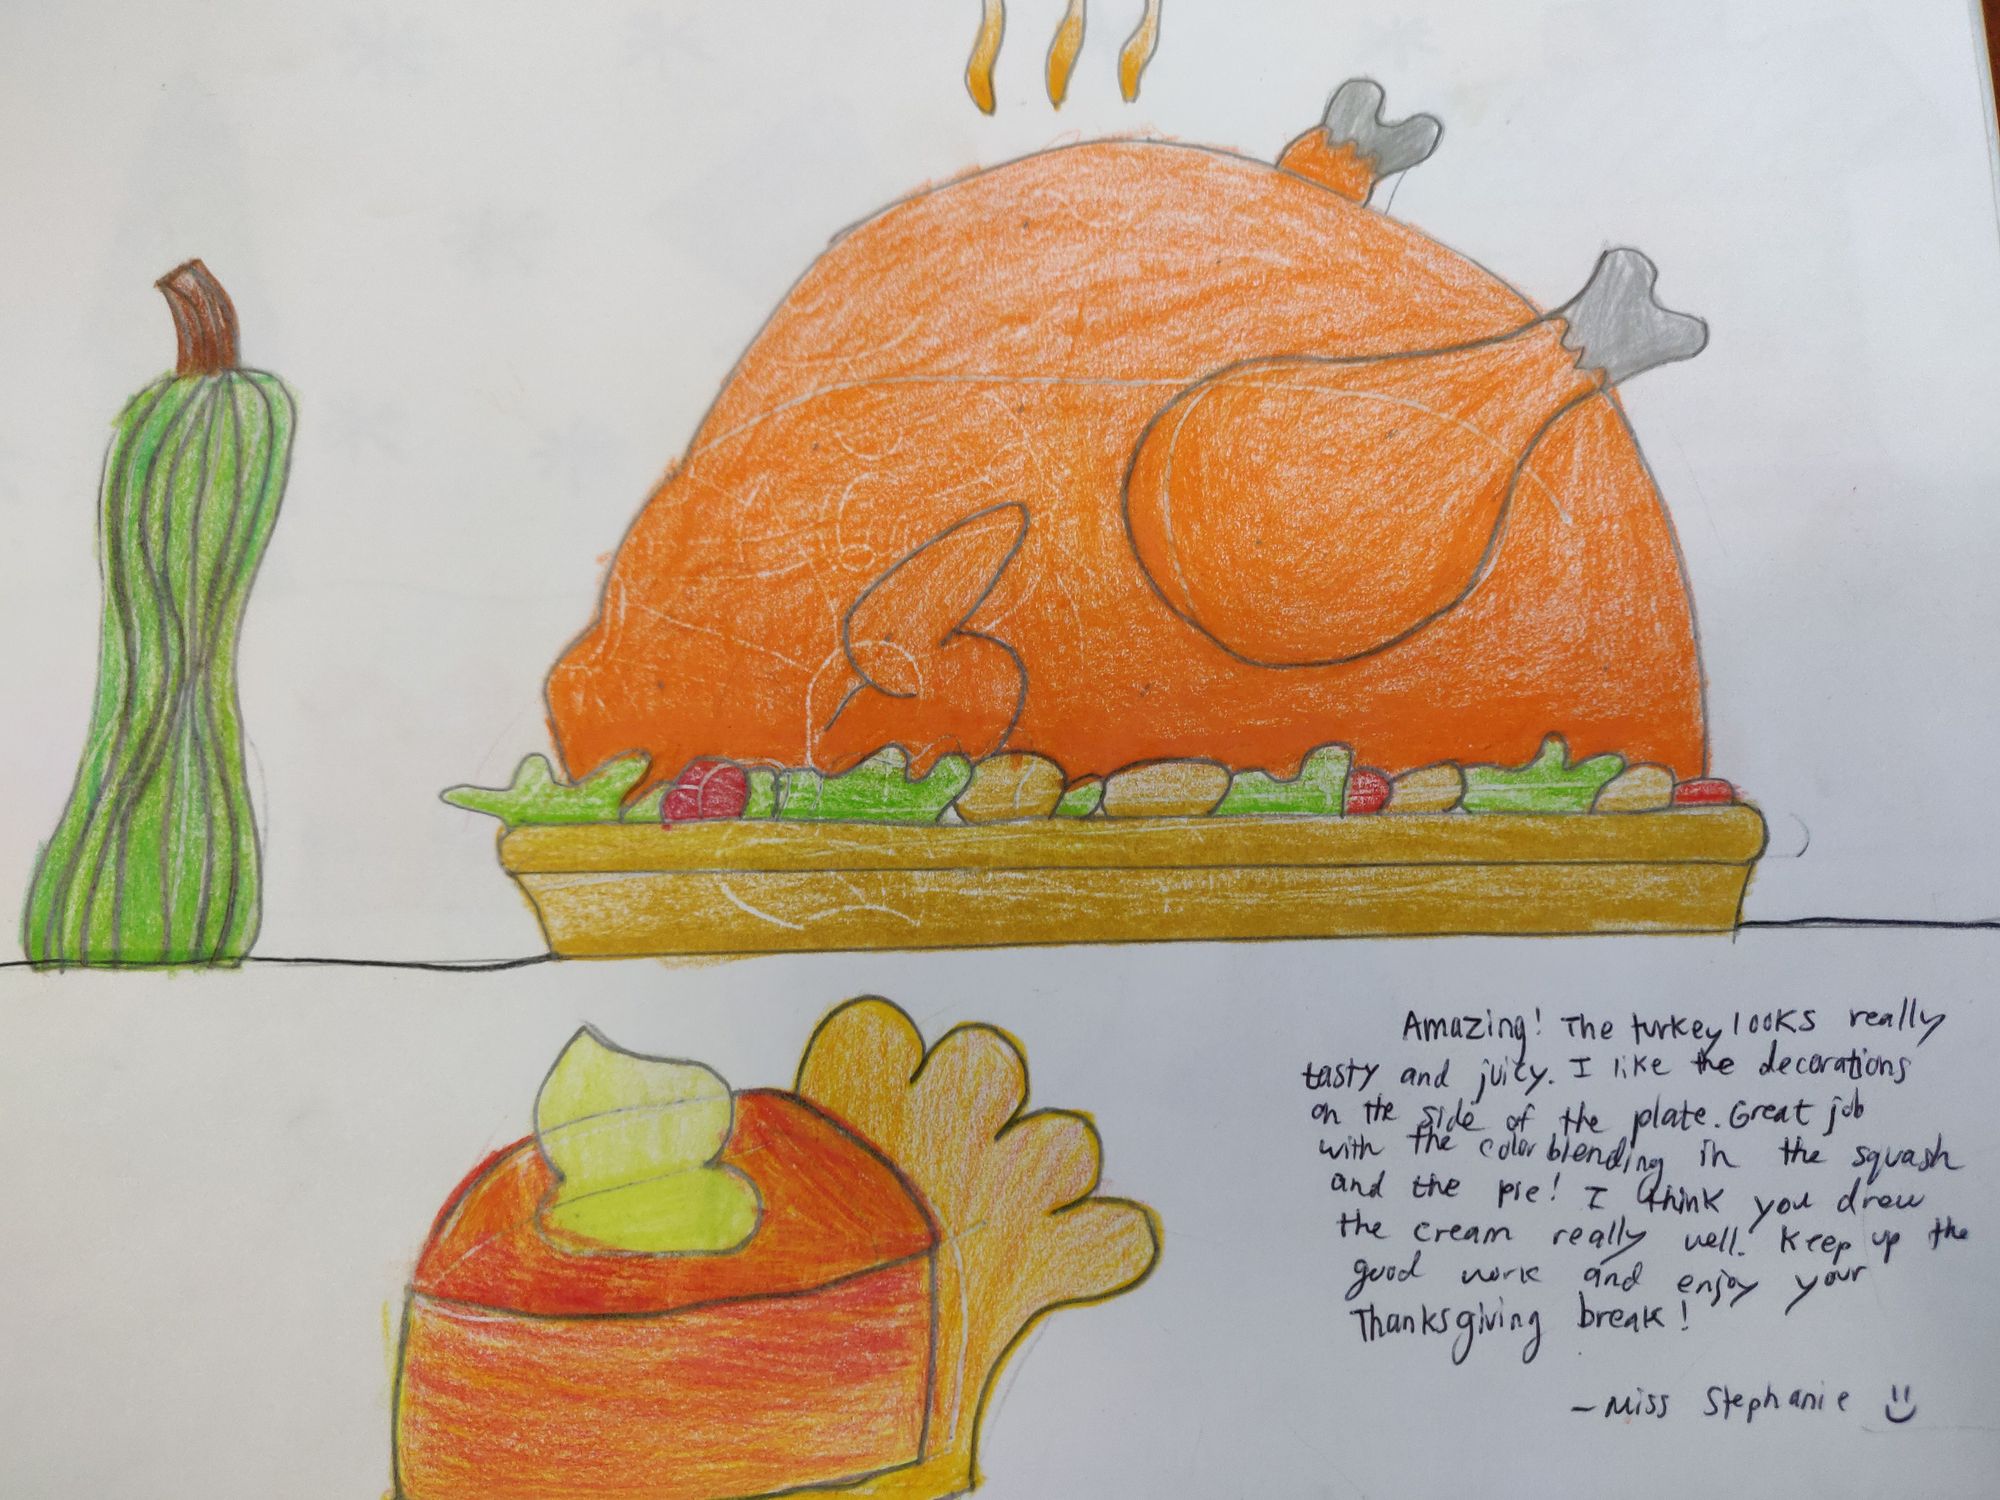 Amazing! The turkey looks really
tasty and juicy. I like the decorations
on the side of the plate. Great job
with the color blending in the squash
and the pie! I think you drew
the cream really well. Keep up the
good work and enjoy your
Thanksgiving break!
- Miss Stephanie